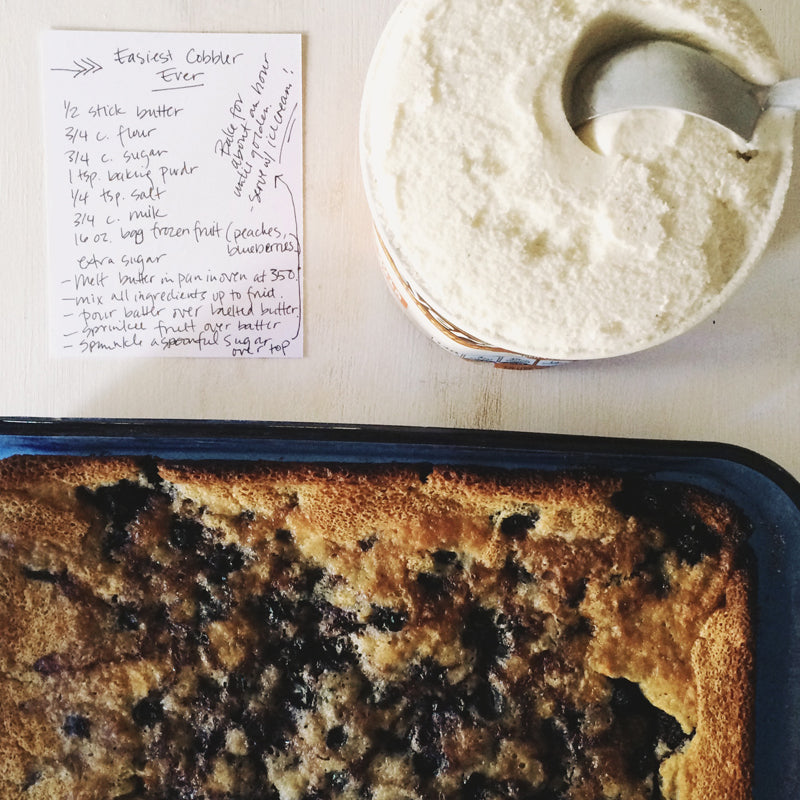 Easiest Cobbler
Ever
1/2 stick butter
3/4 c. flour
3/4 c. sugar
1 tsp. baking pwdr
1/4 tsp. salt
3/4 c. milk
16 oz. bag frozen fruit (peaches,
blueberries)
extra sugar
- Melt butter in pan in oven at 350.
- mix all ingredients up to fruid.
- pour batter over melted butter.
- sprinklee fruit over batter
- sprinkle a spoonful sugar
over top
Bake for
about an hour
until golden.
- serve w/ ice cream!